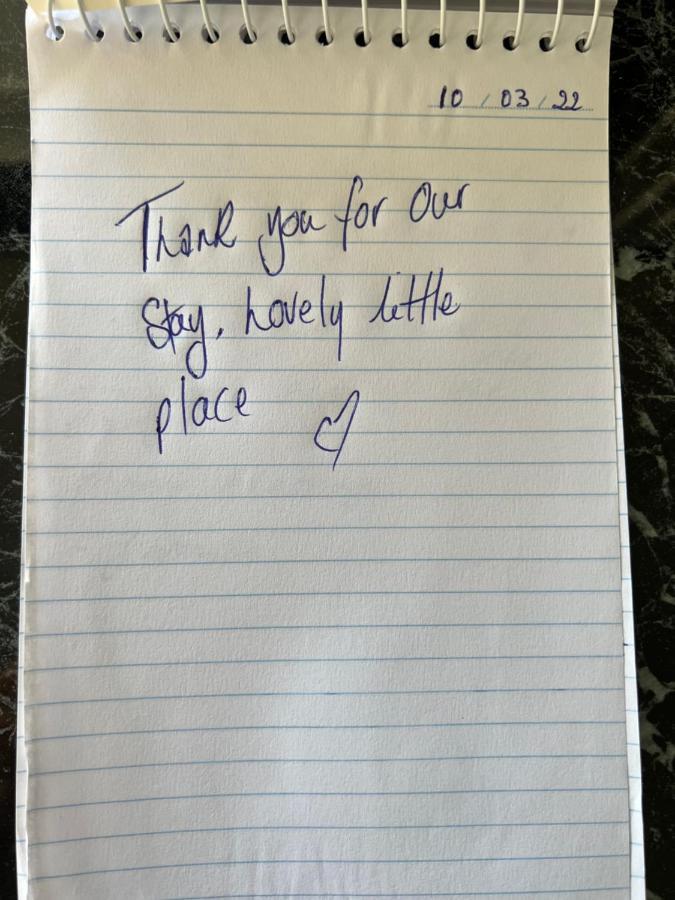 10/03/22
Thank you for our
stay. Lovely little
place